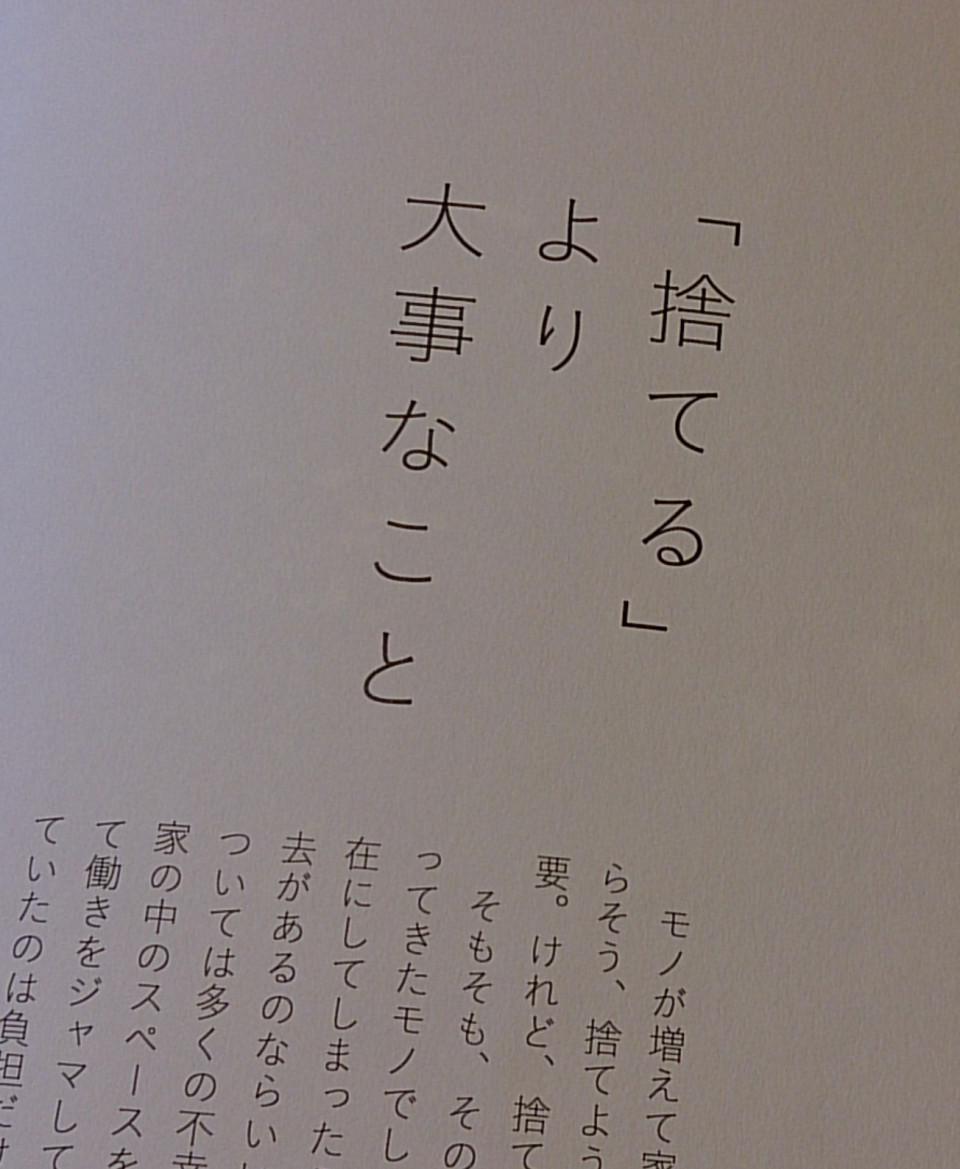 「捨てる」
より
大事なこと
モノが増えて家
らそう、捨てよう
要。けれど、捨て
そもそも、その
ってきたモノでし
在にしてしまった
去があるのならい
ついては多くの不幸
家の中のスペースを
て働きをジャマして
ていたのは負担だけ